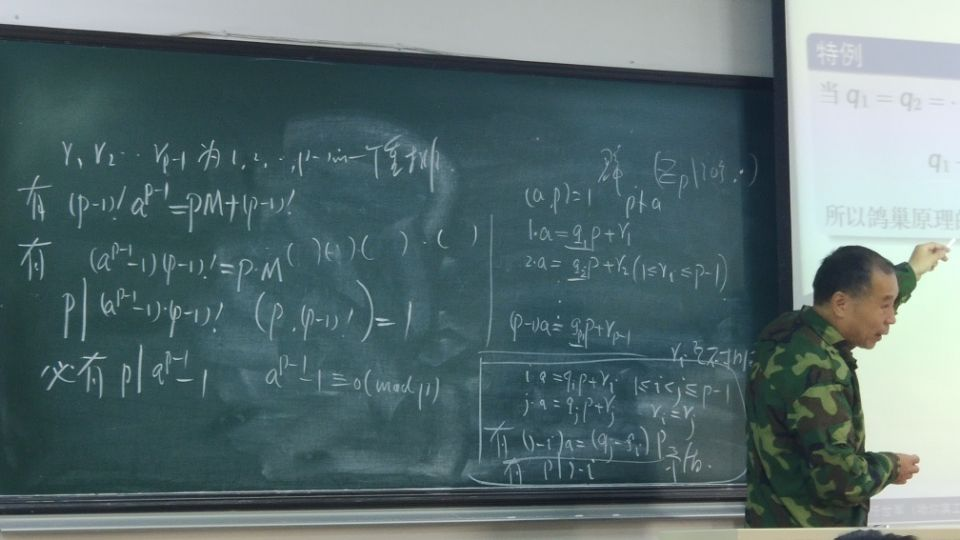 r₁, r₂ ⋯ r_{p-1} 为 1, 2, ⋯, p-1 的一个重排
有 (p-1)! a^{p-1} = pM + (p-1)!
有 (a^{p-1}-1)(p-1)! = p·M
p | (a^{p-1}-1)·(p-1)! (p, (p-1)!) = 1
必有 p | a^{p-1}-1 a^{p-1}-1 ≡ 0 (mod p)
群
(a, p) = 1 p∤a
1·a = q₁p + r₁
2·a = q₂p + r₂ (1 ≤ r_i ≤ p-1)
⋮
(p-1)a = q_{p-1}p + r_{p-1}
r_i 互不相同
i·a = q_i p + r_i 1 ≤ i < j ≤ p-1
j·a = q_j p + r_j r_i = r_j
有 (j-i)a = (q_j - q_i) p
有 p | j-i
特例
当 q₁ = q₂ = ·
q₁
所以鸽巢原理的